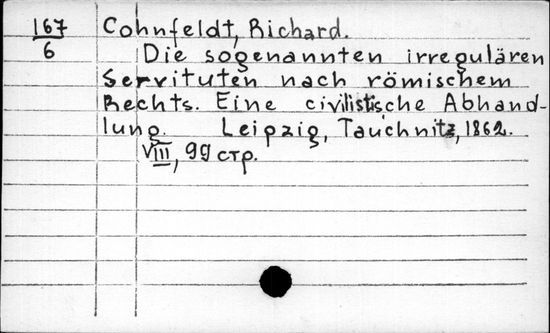 167 Cohnfeldt, Richard.
6 Die sogenannten irregulären
Servituten nach römischem
Rechts. Eine civilistische Abhand-
lung. Leipzig, Tauchnitz, 1862.
VIII, 99 стр.